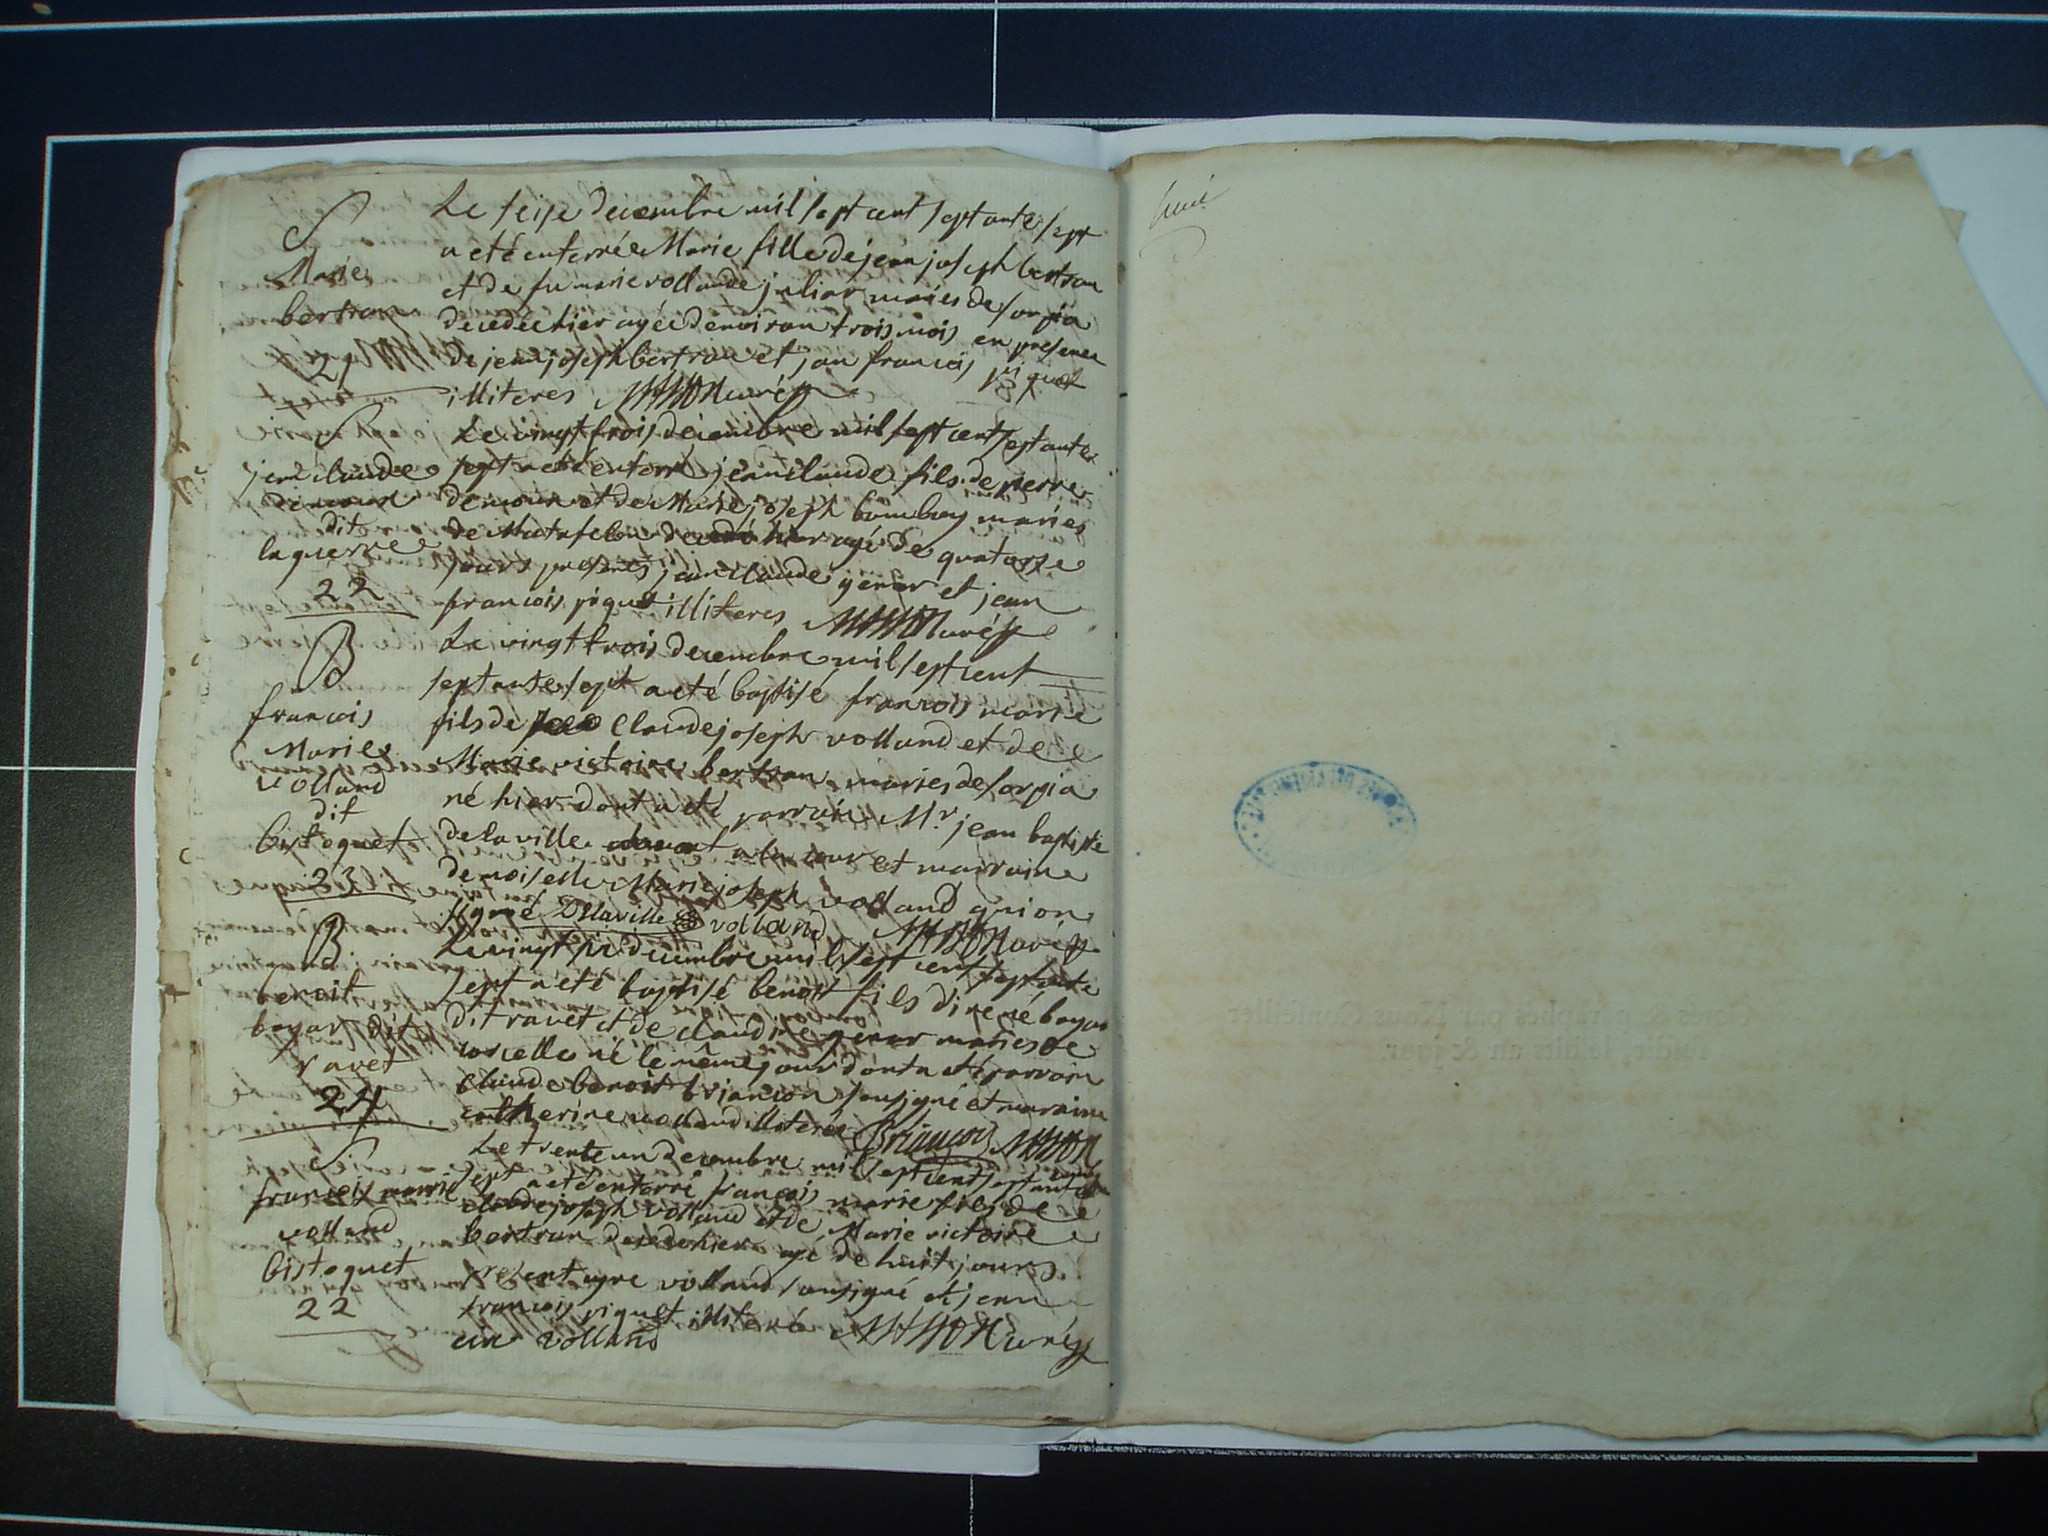 S
Marie
bertran
21
Le seise decembre mil sept cent septante sept
a eté enterrée Marie fille de jean joseph bertran
et de fu marie vollande juliar maries de sorpia
decedée hier agée denviron trois mois en presence
de jean joseph bertran et jan francois piquet
illiteres curé
S
jean claude
demour
dit
laguerre
22
Le vingt trois decembre mil sept cent septante
sept a eté enterré jean claude fils de pierre
demour et de Marie joseph bomboy maries
de Matafelon decedé hier agé de quatorze
jours presents jean claude genor et jean
francois piquet illiteres curé
B
francois
Marie
volland
dit
bistoquet
23
Le vingt trois decembre mil sept cent
septante sept a eté baptisé francois marie
fils de claude joseph volland et de
Marie victoire bertran maries de sorpia
né hier dont a eté parrain Mr jean baptiste
delaville a la cour et marraine
demoiselle Marie joseph volland qui ont
signé Dellaville volland curé
B
benoit
boyar dit
ravet
24
Le vingt six decembre mil sept cent septante
sept a eté baptisé benoit fils di rené boyar
dit ravet et de claudine genor maries de
corcelle né le même jour dont a eté parrain
claude benoit briancon sousigné et maraine
catherine volland illiterée Briançon
S
francois marie
volland
bistoquet
22
Le trente un decembre mil sept cent septante
sept a eté enterré francois marie fils de
claude joseph volland et de Marie victoire
bertran decedé hier agé de huit jours
present volland sousigné et jean
francois piquet illiteré curé
volland